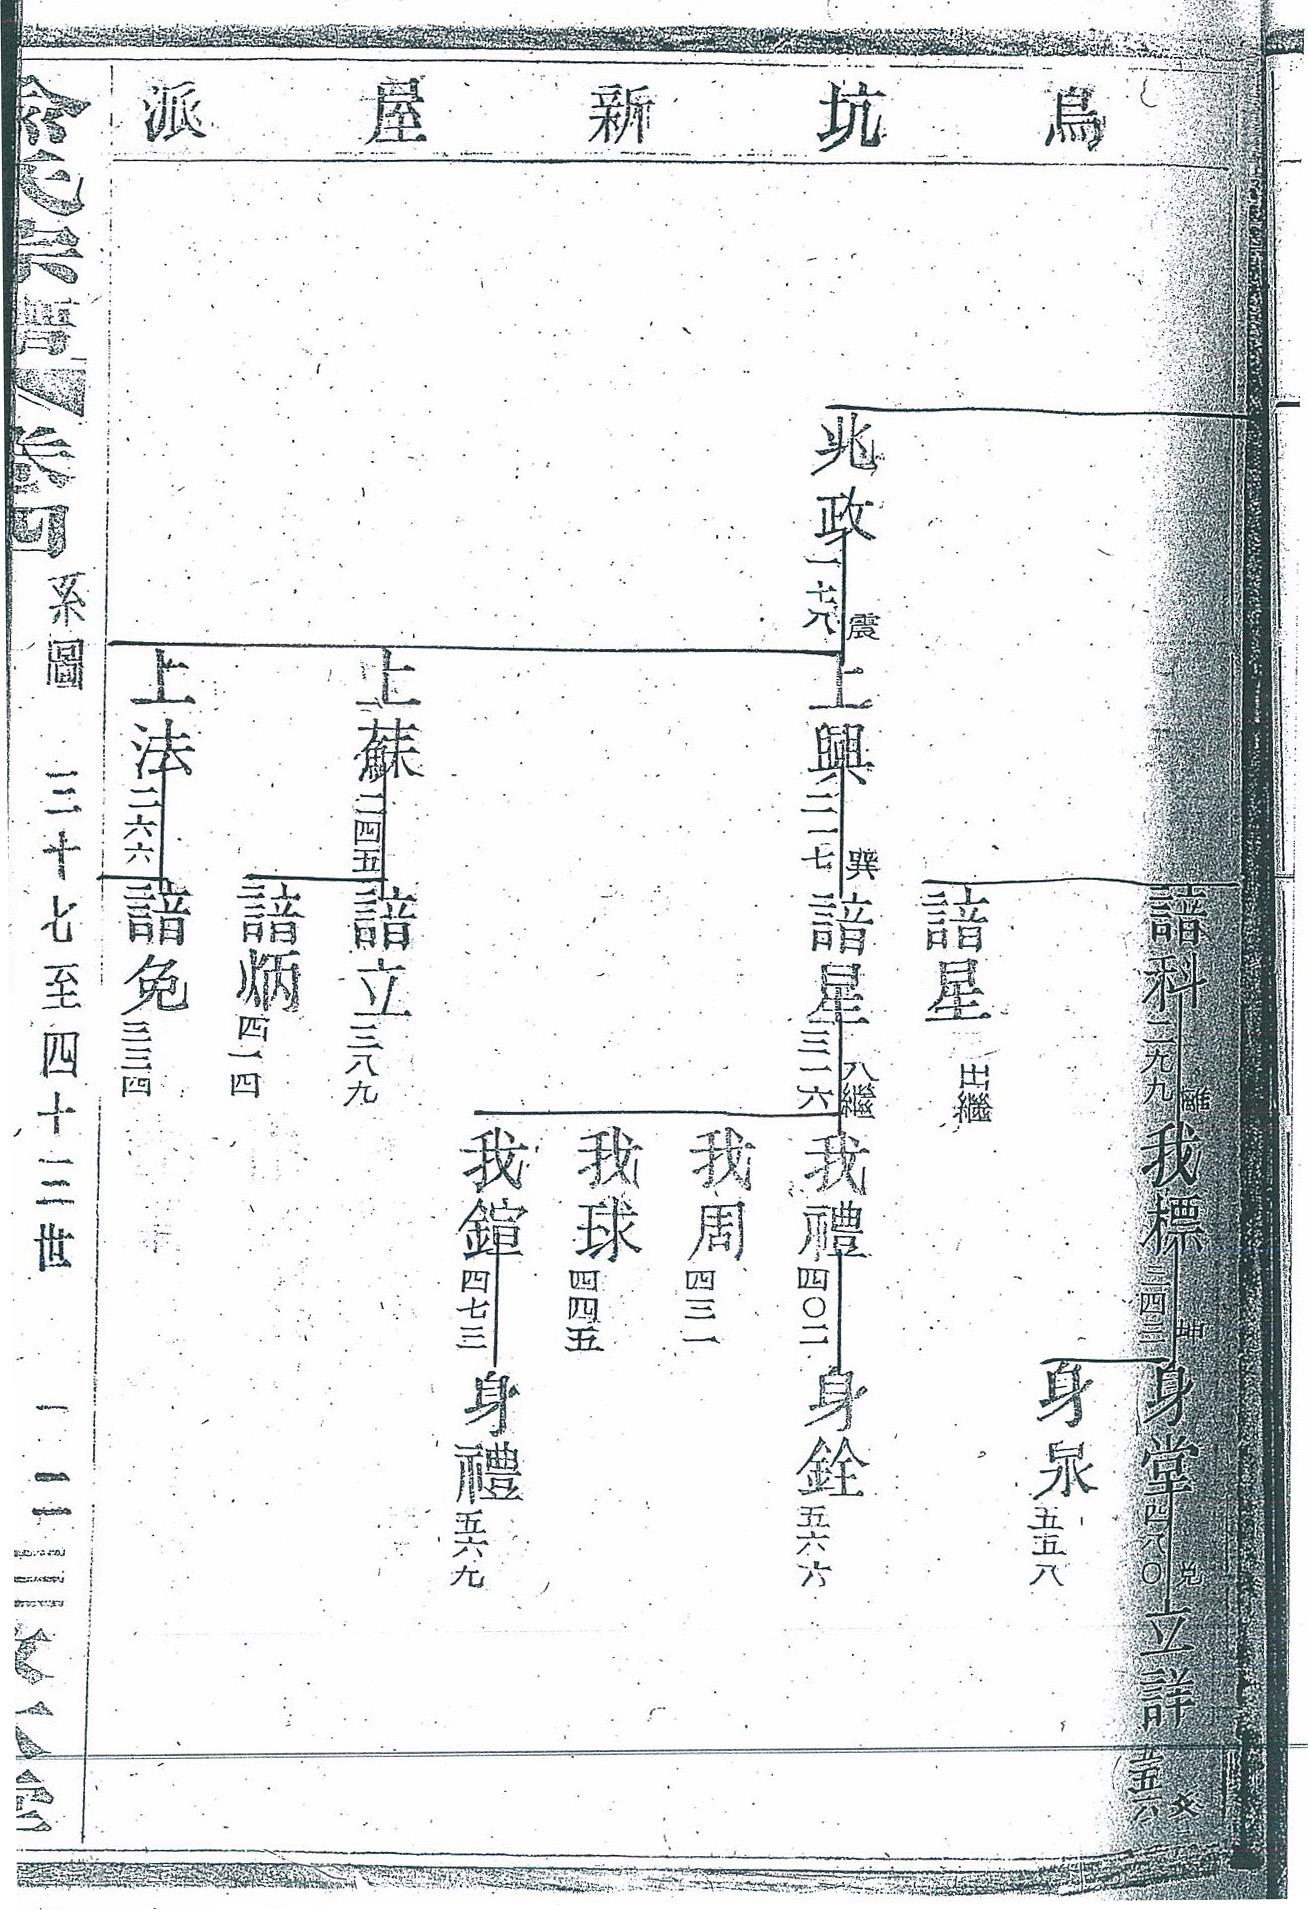 烏坑新屋派
諳科 二九九 離
我標 三四三 坤
身堂 四八〇 兌
立詳 五五六
身泉 五五八
諳星 出繼
兆政 一七八 震
上興 二一七 巽
諳星 三一六 入繼
我禮 四〇二
身銓 五六六
我周 四三一
我球 四四五
我鍹 四七三
身禮 五六九
上蘇 二四五
諳立 三八九
諳炳 四一四
上法 二六六
諳免 三三四
余氏宗譜 卷四
系圖 三十七至四十三世